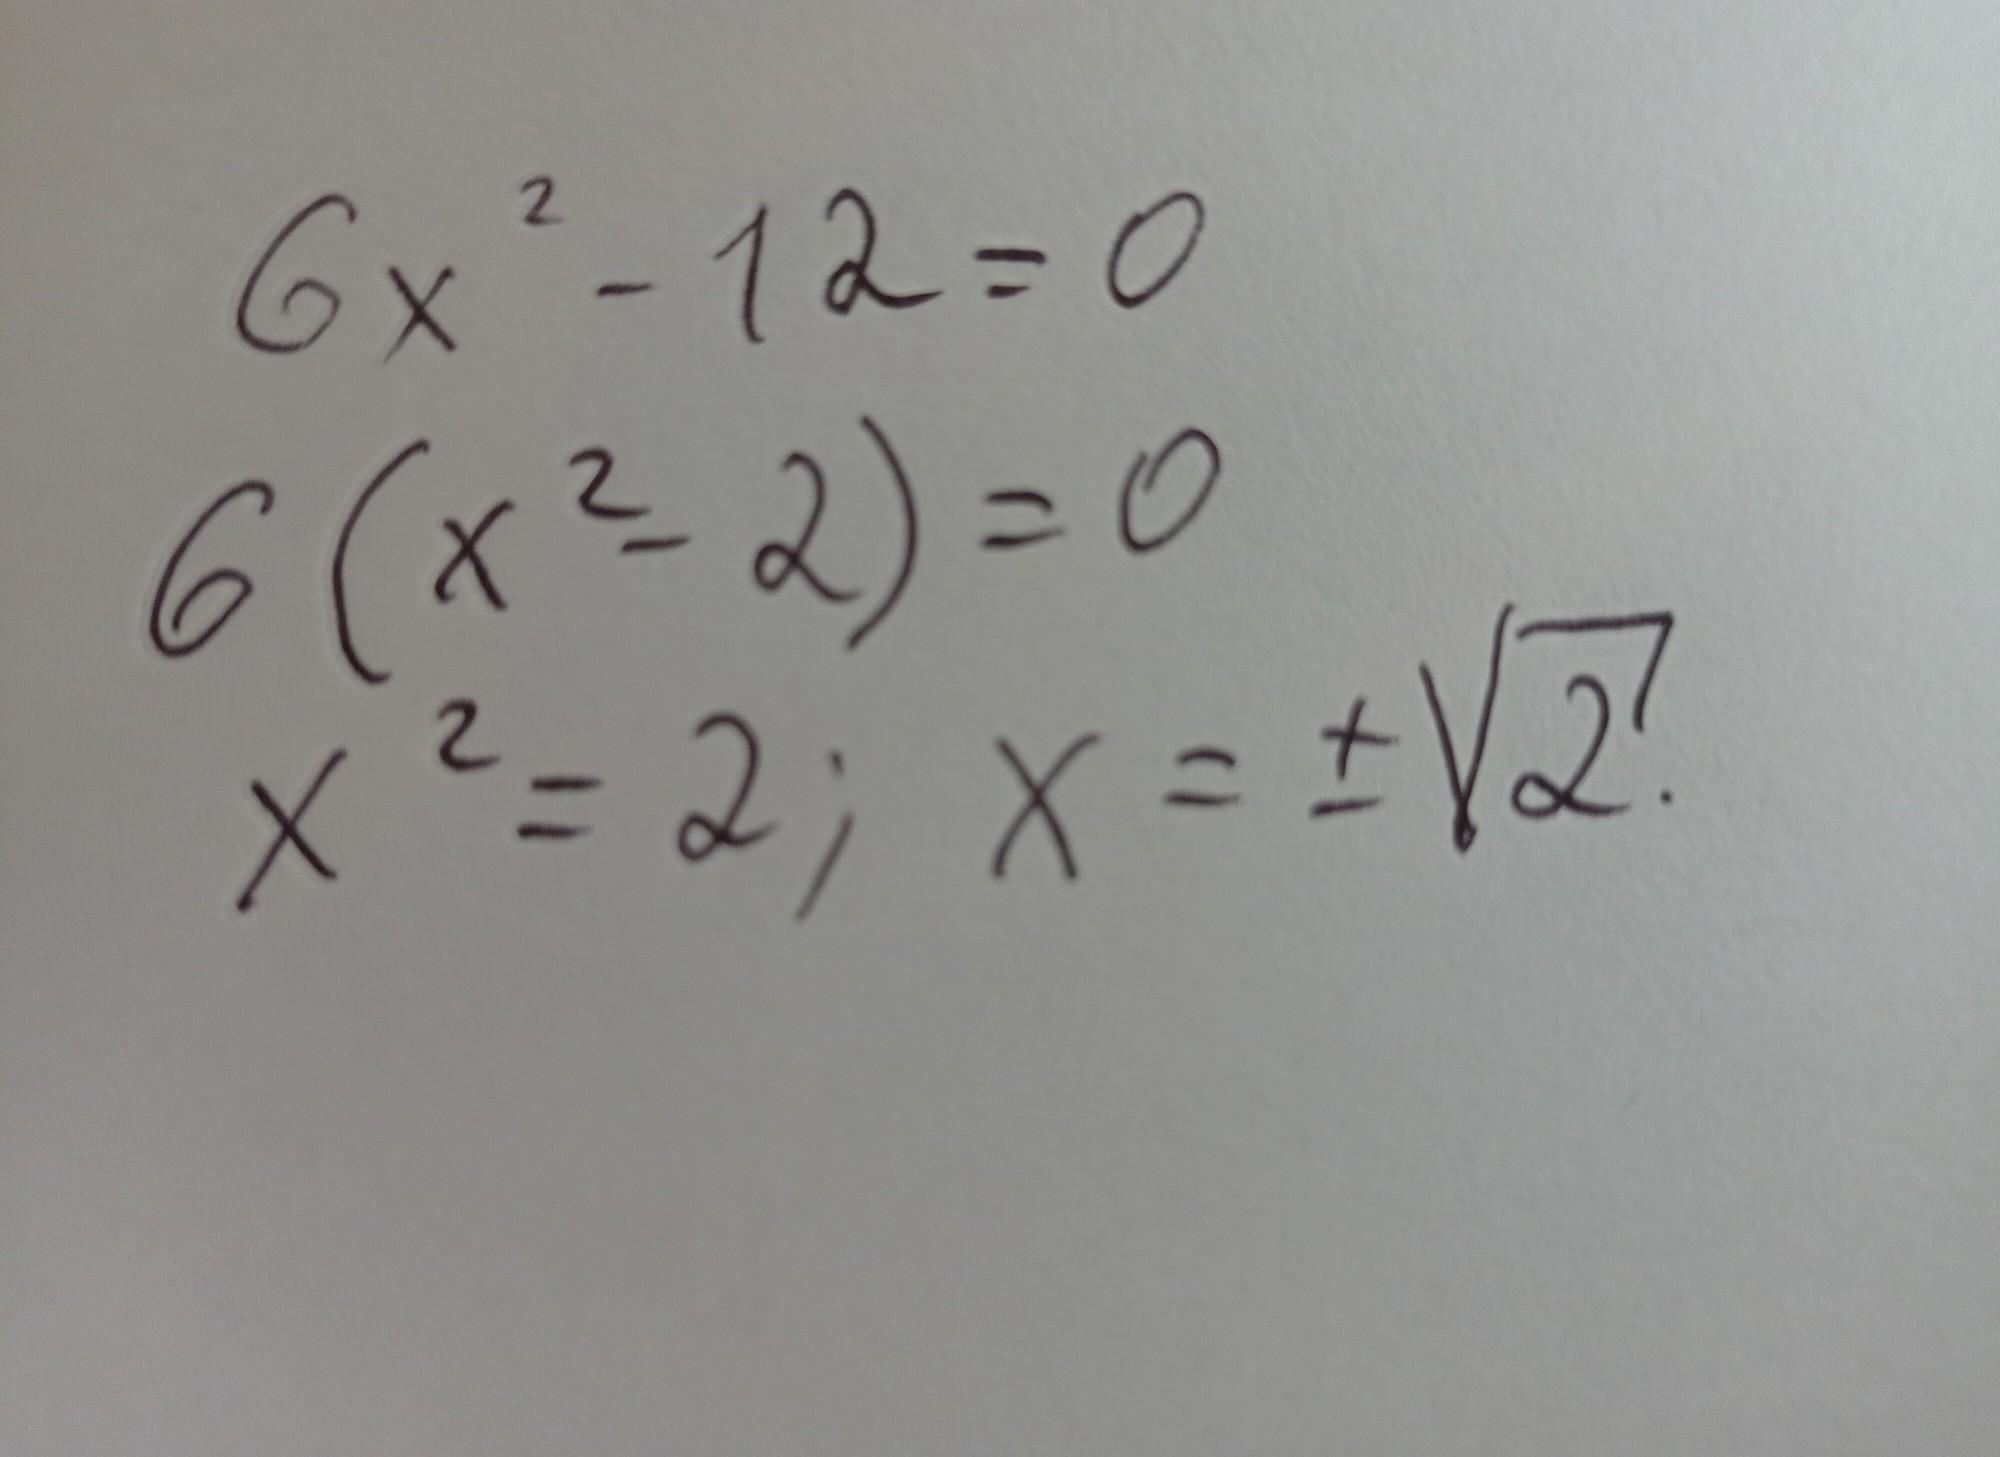 6x² - 12 = 0
6(x² - 2) = 0
x² = 2; x = ±√2.